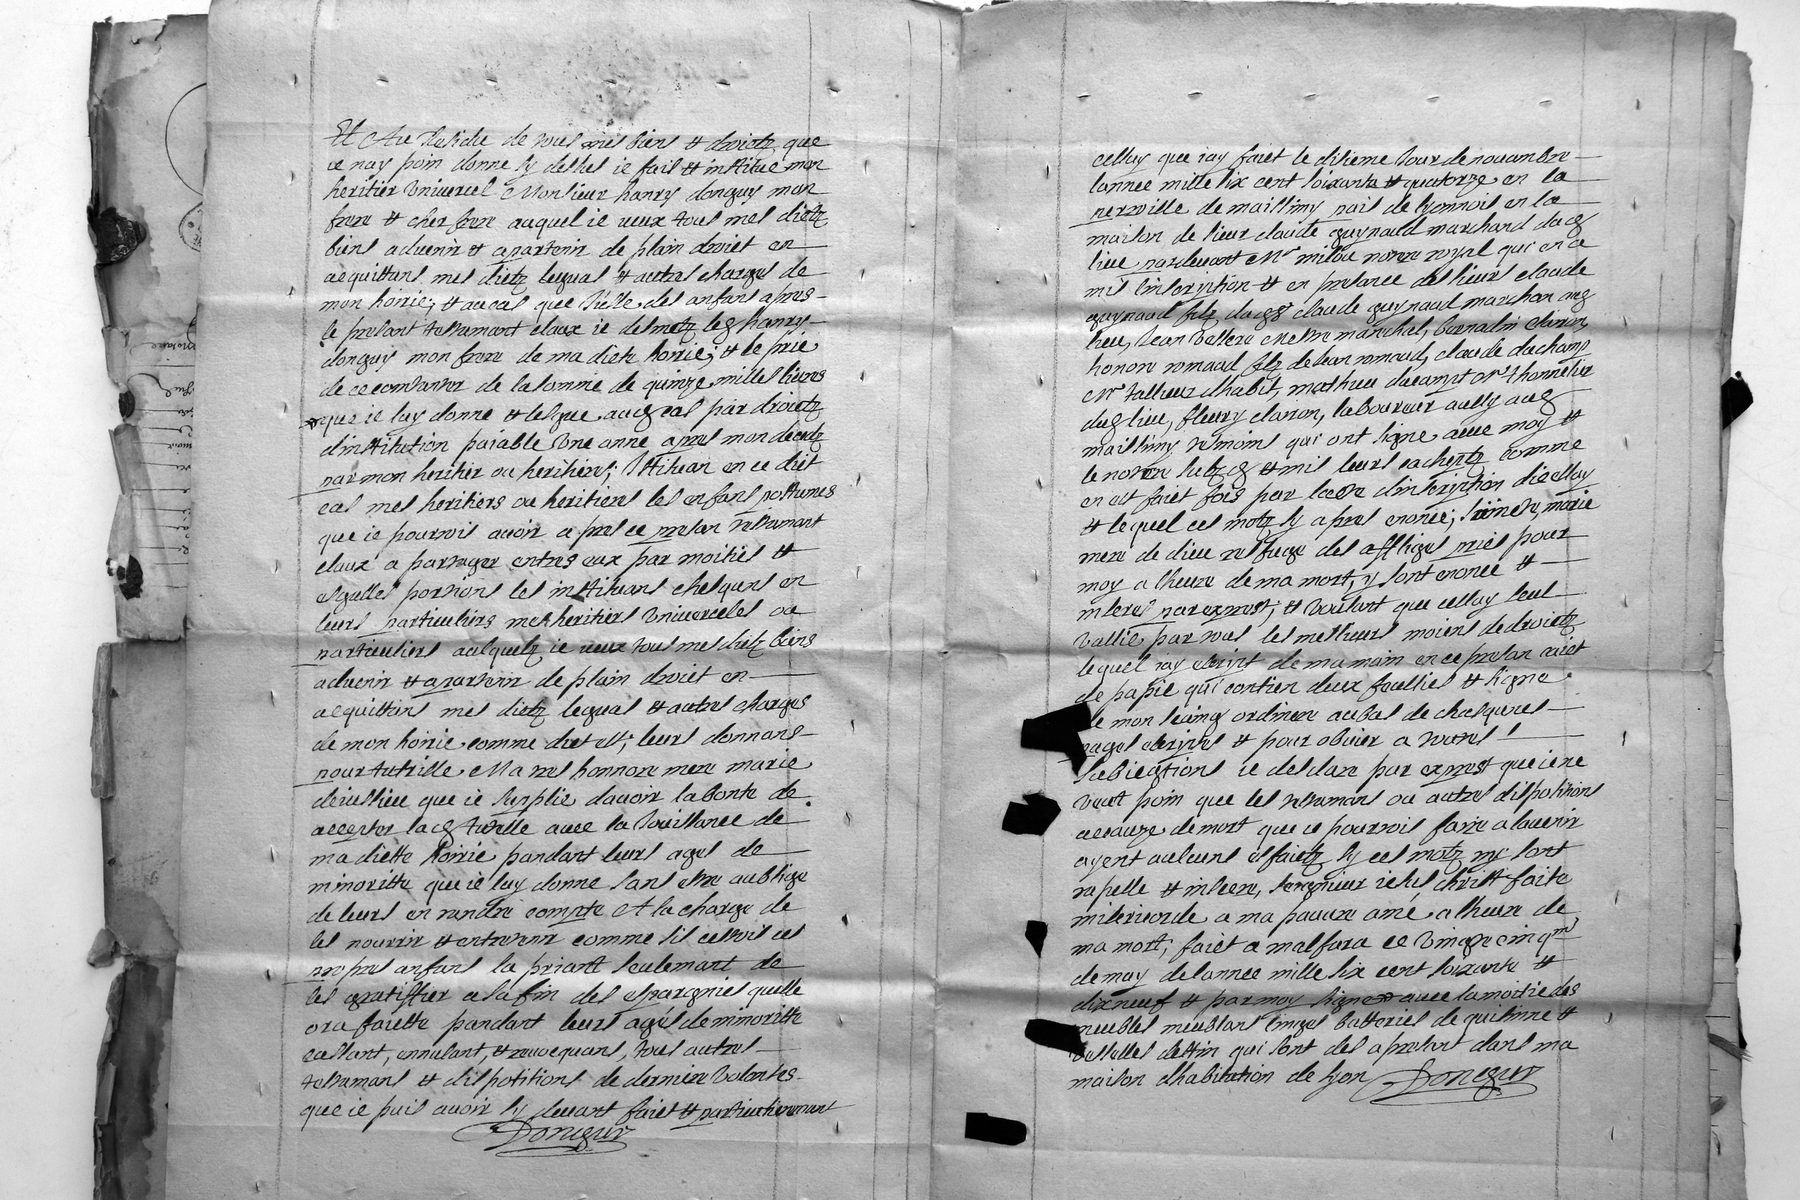 Et Au Residu de tous mes biens et droietz que
ie nay poin donne sy dessus ie fais et institue mon
heritier vniuercel Monsieur hanry donguy mon
frere et cher frere auquel ie ueux tous mes dietz
biens aduenir et apartenir de plain droiet en
acquittans mes dietz legual et autres charges de
mon hoirie; et au cas que des anfans apres
le presant testamant claux ie desmetz led hanry
donguy mon frere de ma diete hoirie; et le prie
de ce contanter de la somme de quinze milles liures
que ie luy donne et legue aud cas par droietz
dinstitution paiable vne anne apres mon decedz
par mon heritier ou heritiere; Istituan en ce diet
cas mes heritiers ou heritieres les enfans postumes
que ie pourrois auoir apres ce presan testamant
claux a partager entres eux par moities et
esquelles portions les instituans chesquns en
leurs particuliers mes heritiers vniuercelles ou
particuliers ausquelz ie ueux tous mes dietz biens
aduenir et apartenir de plain droiet en
acquittans mes dietz legual et autres charges
de mon hoirie comme diet est; leurs donnans
pour tutrille Ma tres honnore mere marie
que ie supplie dauoir la bonte de
accepter lad tutelle auec la Iouissance de
ma diette hoirie pandant leurs ages de
minoritte que ie luy donne sans estre aublige
de leurs en randre compte Et a la charge de
les nourrir et entretenir comme sil cestoit ces
propres anfans la priant seulemant de
les gratiffier a la fin des espargnies quelle
ora faiette pandant leurs ages de minoritte
cassant, annulant, et reuocquans, tous autres
testamans et dispotitions de derniere volontes
que ie puis auoir sy deuant faiet et particulieremant
Donguy
celluy que iay faiet le disieme Iour de nouambre
lannee mille six cent soixante et quatorze en la
de maillimy pais de lyonnois en la
maison de sieur claude guynaud marchand dud
lieu pardeuant Mr milou notere royal qui en a
mis linscription et en presance des sieurs claude
guynaud filz dudt claude guynaud marchan aud
lieu, Jean Vallere Mestre marechal, benadin clairon
honore romaud filz de Jean romaud, claude duchamp
Mr tallieur dhabit, mathieu ducampt Mr thonnelier
dud lieu, fleury clairon, laboureur aussy aud
maillimy temoins qui ont signe auec moy et
le notere subzd et mis leurs cachetz comme
en est faiet fois par lacte dinscription dicelluy
et lequel ces motz sy apres enonce; marie
mere de dieu resfuge des affliges pries pour
moy a lheure de ma mort, y sont enonce et
inseres par expres; et voulant que celluy seul
vallie par tous les mellieurs moiens de droietz
lequel iay escript de ma main en ce presan caiet
de papie qui contien deux foellies et signe
de mon seing ordinere au bas de chasqunes
pages escriptes et pour obuier a toutes
ie desclare par expres que ie ne
veut poin que les testamans ou autres dispotitions
a cauze de mort que ie pourrois faire a laduenir
ayent aulcuns esfaietz sy ces motz ny sont
rapelle et insere, seigneur iesus christ faite
misericorde a ma pauure ame a lheure de
ma mort; faiet a malfara ce vingt cinqme
de may de lannee mille six cent soixante et
dixneuf et par moy signe auec la moitie des
meubles meublans linges batteries de quisinne et
vesselles destin qui sont des apresant dans ma
maison dhabitation de lyon Donguy